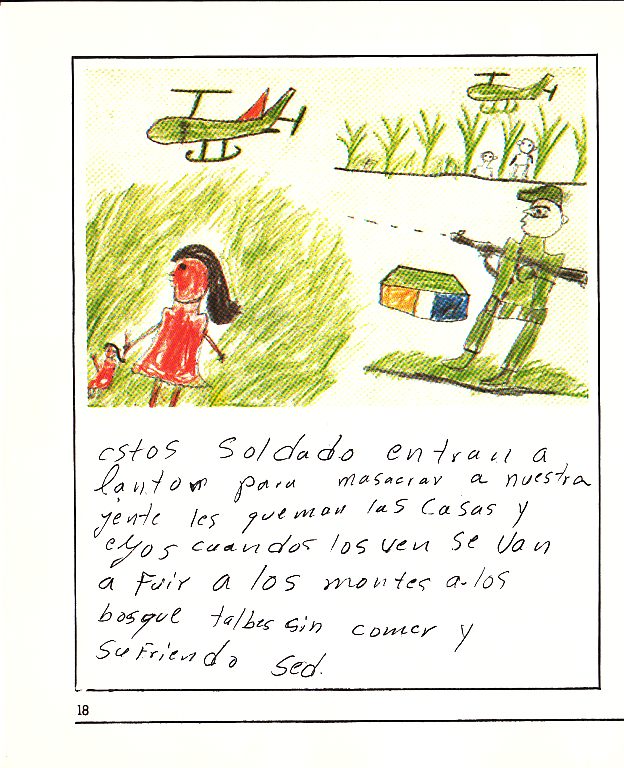 estos Soldado entran a
lanton para masacrar a nuestra
jente les queman las Casas y
eyos cuandos los ven se van
a Fuir a los montes a los
bosque talbes sin comer y
suFriendo sed.
18